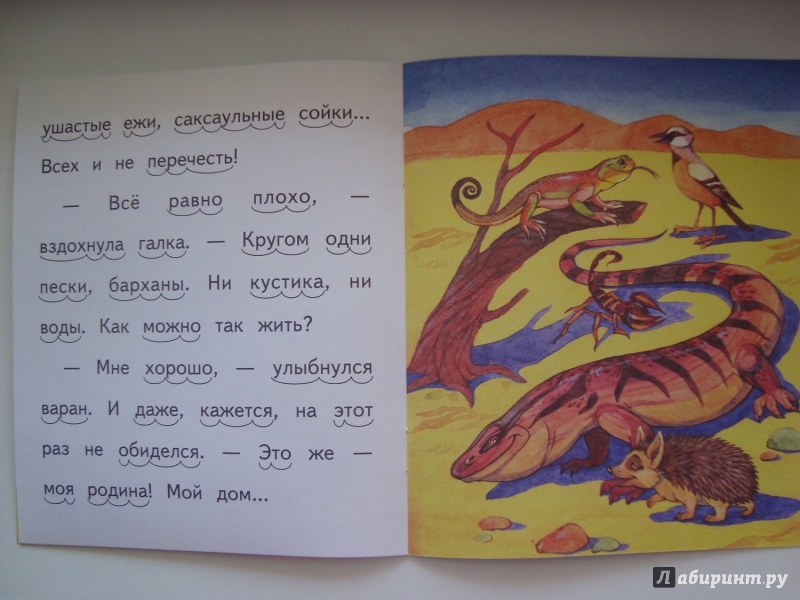 ушастые ежи, саксаульные сойки...
Всех и не перечесть!
— Всё равно плохо, —
вздохнула галка. — Кругом одни
пески, барханы. Ни кустика, ни
воды. Как можно так жить?
— Мне хорошо, — улыбнулся
варан. И даже, кажется, на этот
раз не обиделся. — Это же —
моя родина! Мой дом...
Лабиринт.ру